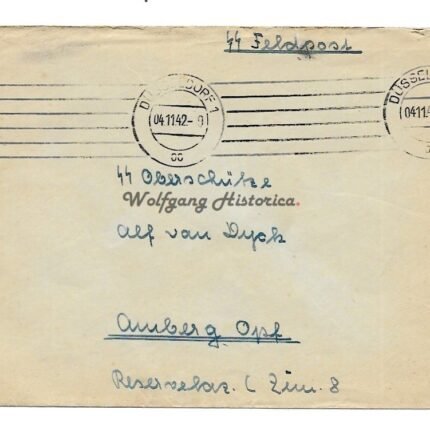 ᛋᛋ Feldpost
DÜSSELDORF 1
04.11.42.-9
cc
DÜSSEL
04.11.4
ᛋᛋ Oberschütze
Wolfgang Historica.
Alf van Dyck
Amberg Opf
Reservelaz. C Zim. 8